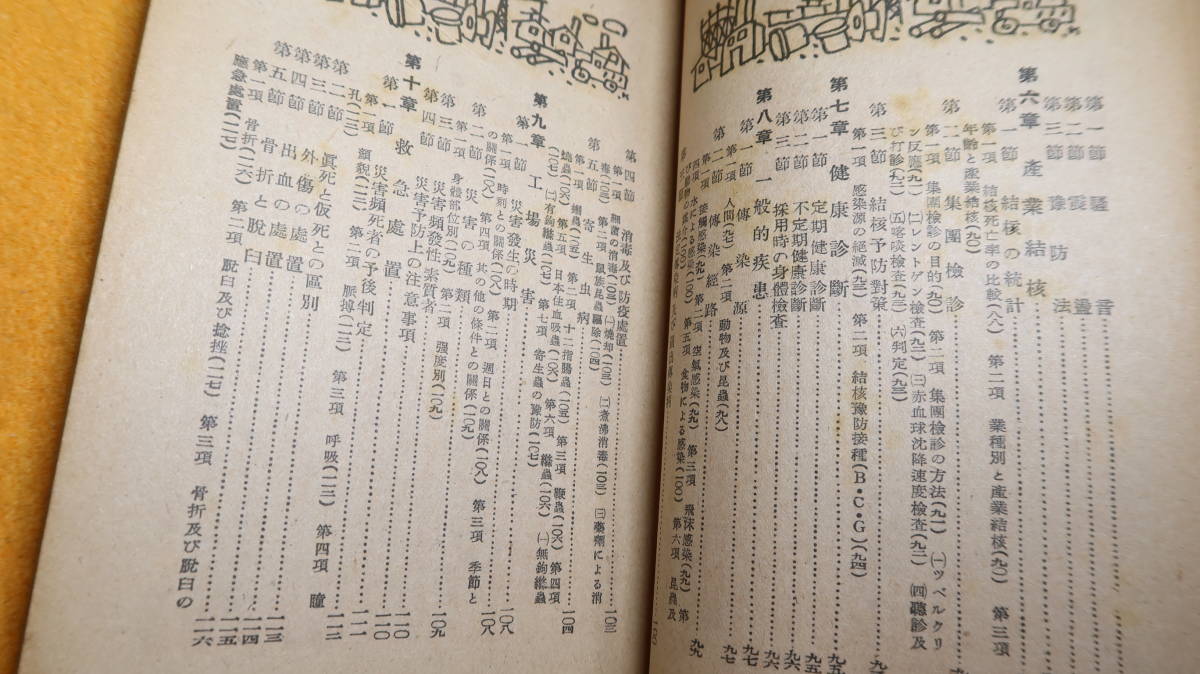 第一節 騷音
第二節 震盪
第三節 豫防法
第六章 産業結核
第一節 結核の統計
第一項 結核死亡率の比較(八八) 第二項 業種別と産業結核(九〇) 第三項
年齡と産業結核(九〇)
第二節 集團檢診
第一項 集團檢診の目的(九一) 第二項 集團檢診の方法(九一) ㈠ツベルクリ
ン反應(九一) ㈡レントゲン檢査(九二) ㈢赤血球沈降速度檢査(九二) ㈣聽診及
び打診(九三) ㈤喀痰檢査(九三) ㈥判定(九三)
第三節 結核予防對策
第一項 感染源の絶滅(九三) 第二項 結核豫防接種(B・C・G)(九四)
第七章 健康診斷 九五
第一節 定期健康診斷 九五
第二節 不定期健康診斷 九六
第三節 採用時の身體檢査 九六
第八章 一般的疾患 九七
第一節 傳染源 九七
第一項 人間(九七) 第二項 動物及び昆蟲(九八)
第二節 傳染經路 九九
第一項 接觸感染(九九) 第二項 空氣感染(九九) 第三項 飛沫感染(九九) 第
四項 水による感染(一〇〇) 第五項 食物による感染(一〇〇) 第六項 昆蟲及
び動物の媒介(一〇〇)
第四節 消毒及び防疫處置 一〇三
第一項 細菌の消毒(一〇三) ㈠燒却(一〇三) ㈡煮沸消毒(一〇三) ㈢藥劑による消
毒(一〇三) 第二項 鼠族昆蟲驅除(一〇四)
第五節 寄生虫病 一〇四
第一項 蛔蟲(一〇五) 第二項 十二指腸蟲(一〇五) 第三項 鞭蟲(一〇六) 第四項
蟯蟲(一〇六) 第五項 日本住血吸蟲(一〇六) 第六項 縧蟲(一〇六) ㈠無鉤縧蟲
(一〇七) ㈡有鉤縧蟲(一〇七) 第七項 寄生蟲の豫防(一〇七)
第九章 工場災害 一〇八
第一節 災害發生の時期 一〇八
第一項 時刻との關係(一〇八) 第二項 週日との關係(一〇八) 第三項 季節と
の關係(一〇八) 第四項 其の他の條件との關係(一〇九)
第二節 災害の種類 一〇九
第一項 身體部位別(一〇九) 第二項 强度別(一〇九)
第三節 災害頻發性素質者 一一〇
第四節 災害予防上の注意事項 一一〇
第十章 救急處置 一一一
第一節 災害頻死者の予後判定 一一二
第一項 顏貌(一一二) 第二項 脈搏(一一二) 第三項 呼吸(一一三) 第四項 瞳
孔(一一三)
第二節 眞死と仮死との區別 一一三
第三節 外傷の處置 一一四
第四節 出血の處置 一一五
第五節 骨折と脫臼 一一六
第一項 骨折(一一六) 第二項 脫臼及び捻挫(一一七) 第三項 骨折及び脫臼の
應急處置(一一七)